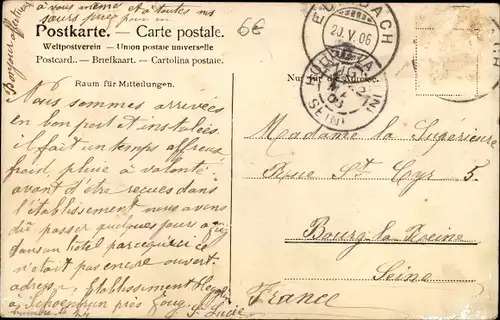 à vous même et à toutes nos
sœurs
Bonjour affectueux
Postkarte. — Carte postale.
Weltpostverein — Union postale universelle
Postcard. — Briefkaart. — Cartolina postale.
6€
BACH
20.V.06
SEINE
Raum für Mitteilungen.
Nur für die Adresse.
Nous sommes arrivées
en bon port et instalées.
Il fait un temps affreux
froid, pluie à volonté.
avant d'être recues dans
l'établissement nous avons
du passer quelques jours a Zug
dans un hôtel parceque ici ce
n'était pas encore ouvert.
adress. Etablissement
à Schoenbrun près Zoug.
numéro 24
Sr Lucie
Madame la Supérieure
Rue St Cyr 5.
Bourg la Reine
Seine
France